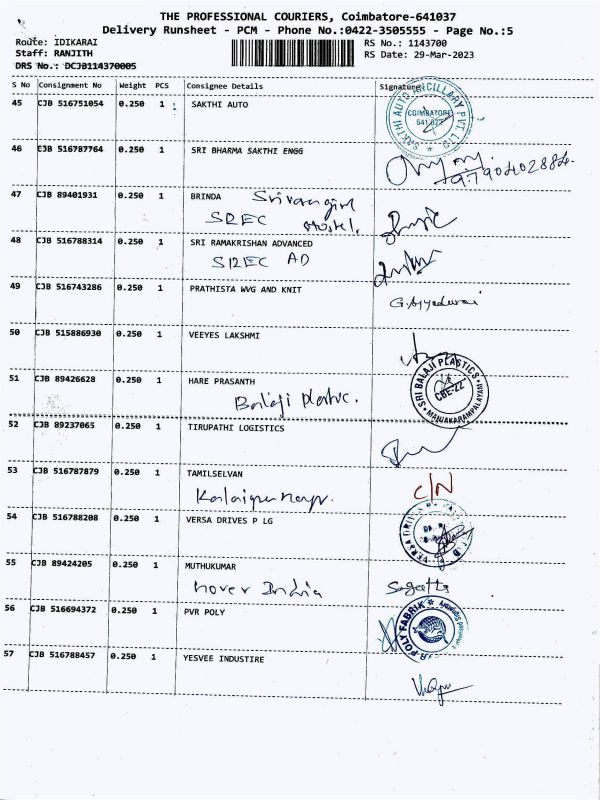 THE PROFESSIONAL COURIERS, Coimbatore-641037
Delivery Runsheet - PCM - Phone No.:0422-3505555 - Page No.:5
Route: IDIKARAI RS No.: 1143700
Staff: RANJITH RS Date: 29-Mar-2023
DRS No.: DCJB114370005
S No Consignment No Weight PCS Consignee Details Signature
45 CJB 516751054 0.250 1 SAKTHI AUTO
SAKTHI AUTO ANCILLARY PVT LTD
COIMBATORE
641 022
46 CJB 516787764 0.250 1 SRI BHARMA SAKTHI ENGG
47 CJB 89401931 0.250 1 BRINDA
SREC Hostel.
48 CJB 516788314 0.250 1 SRI RAMAKRISHAN ADVANCED
SREC AD
49 CJB 516743286 0.250 1 PRATHISTA WVG AND KNIT
G.Ayyadurai
50 CJB 515886930 0.250 1 VEEYES LAKSHMI
51 CJB 89426628 0.250 1 HARE PRASANTH
SRI BALAJI PLASTICS
CBE-22
Balaji Plastic.
52 CJB 89237065 0.250 1 TIRUPATHI LOGISTICS
53 CJB 516787879 0.250 1 TAMILSELVAN
C/N
54 CJB 516788208 0.250 1 VERSA DRIVES P LG
55 CJB 89424205 0.250 1 MUTHUKUMAR
hover India
56 CJB 516694372 0.250 1 PVR POLY
POLY FABRIK
57 CJB 516788457 0.250 1 YESVEE INDUSTIRE